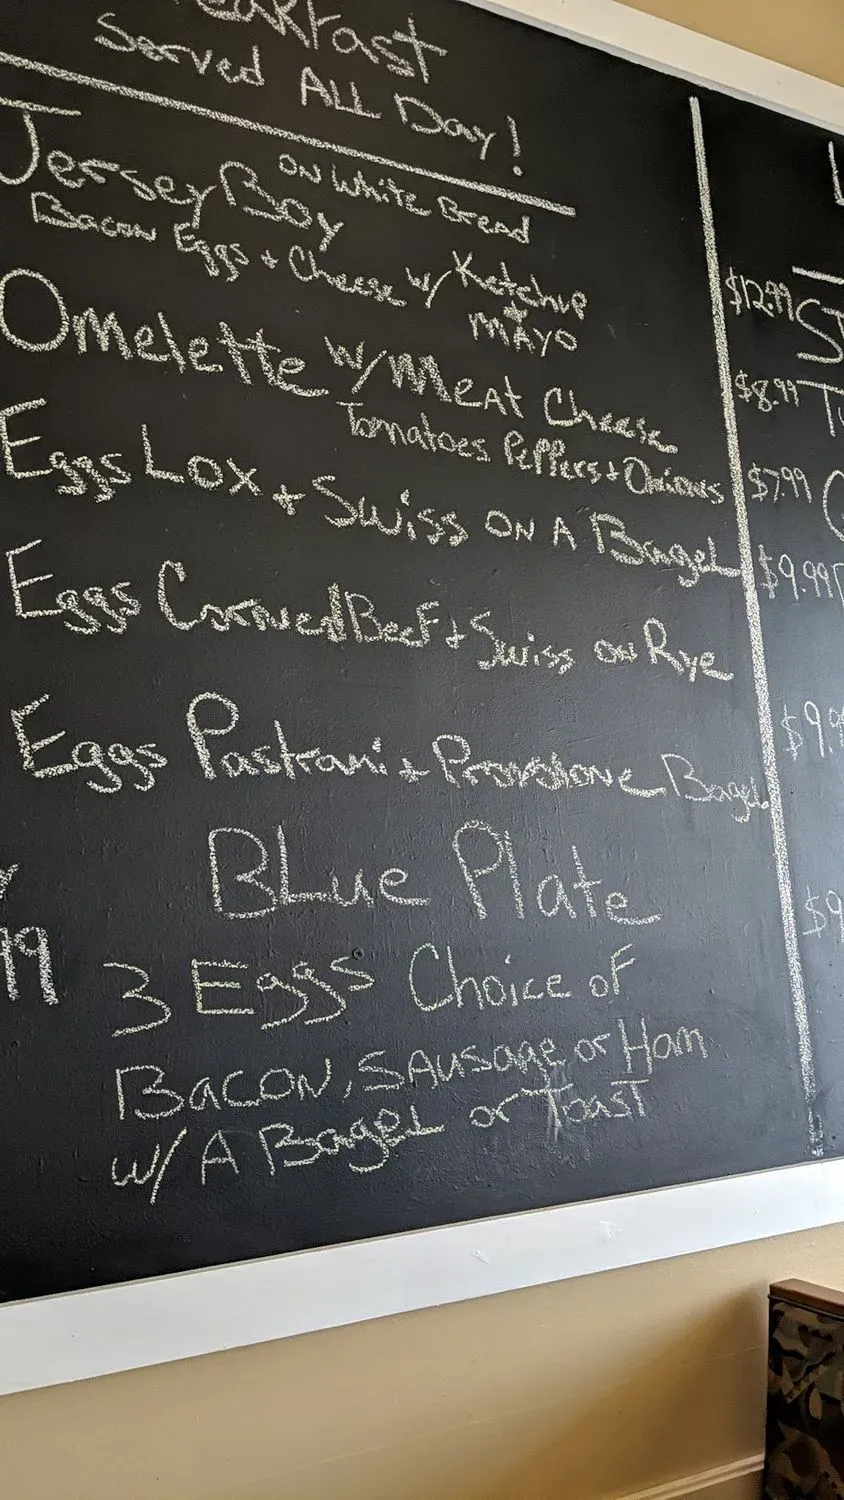 Served ALL Day!
Jersey Boy ON White Bread
Bacon Eggs + Cheese w/ Ketchup + MAYO
Omelette w/ Meat Cheese
Tomatoes Peppers + Onions
Eggs Lox + Swiss ON A Bagel
Eggs Corned Beef + Swiss on Rye
Eggs Pastrami + Provolone Bagel
BLue Plate
3 Eggs Choice of
Bacon, Sausage or Ham
w/ A Bagel or Toast
99
$12.99
$8.99
$7.99
$9.99